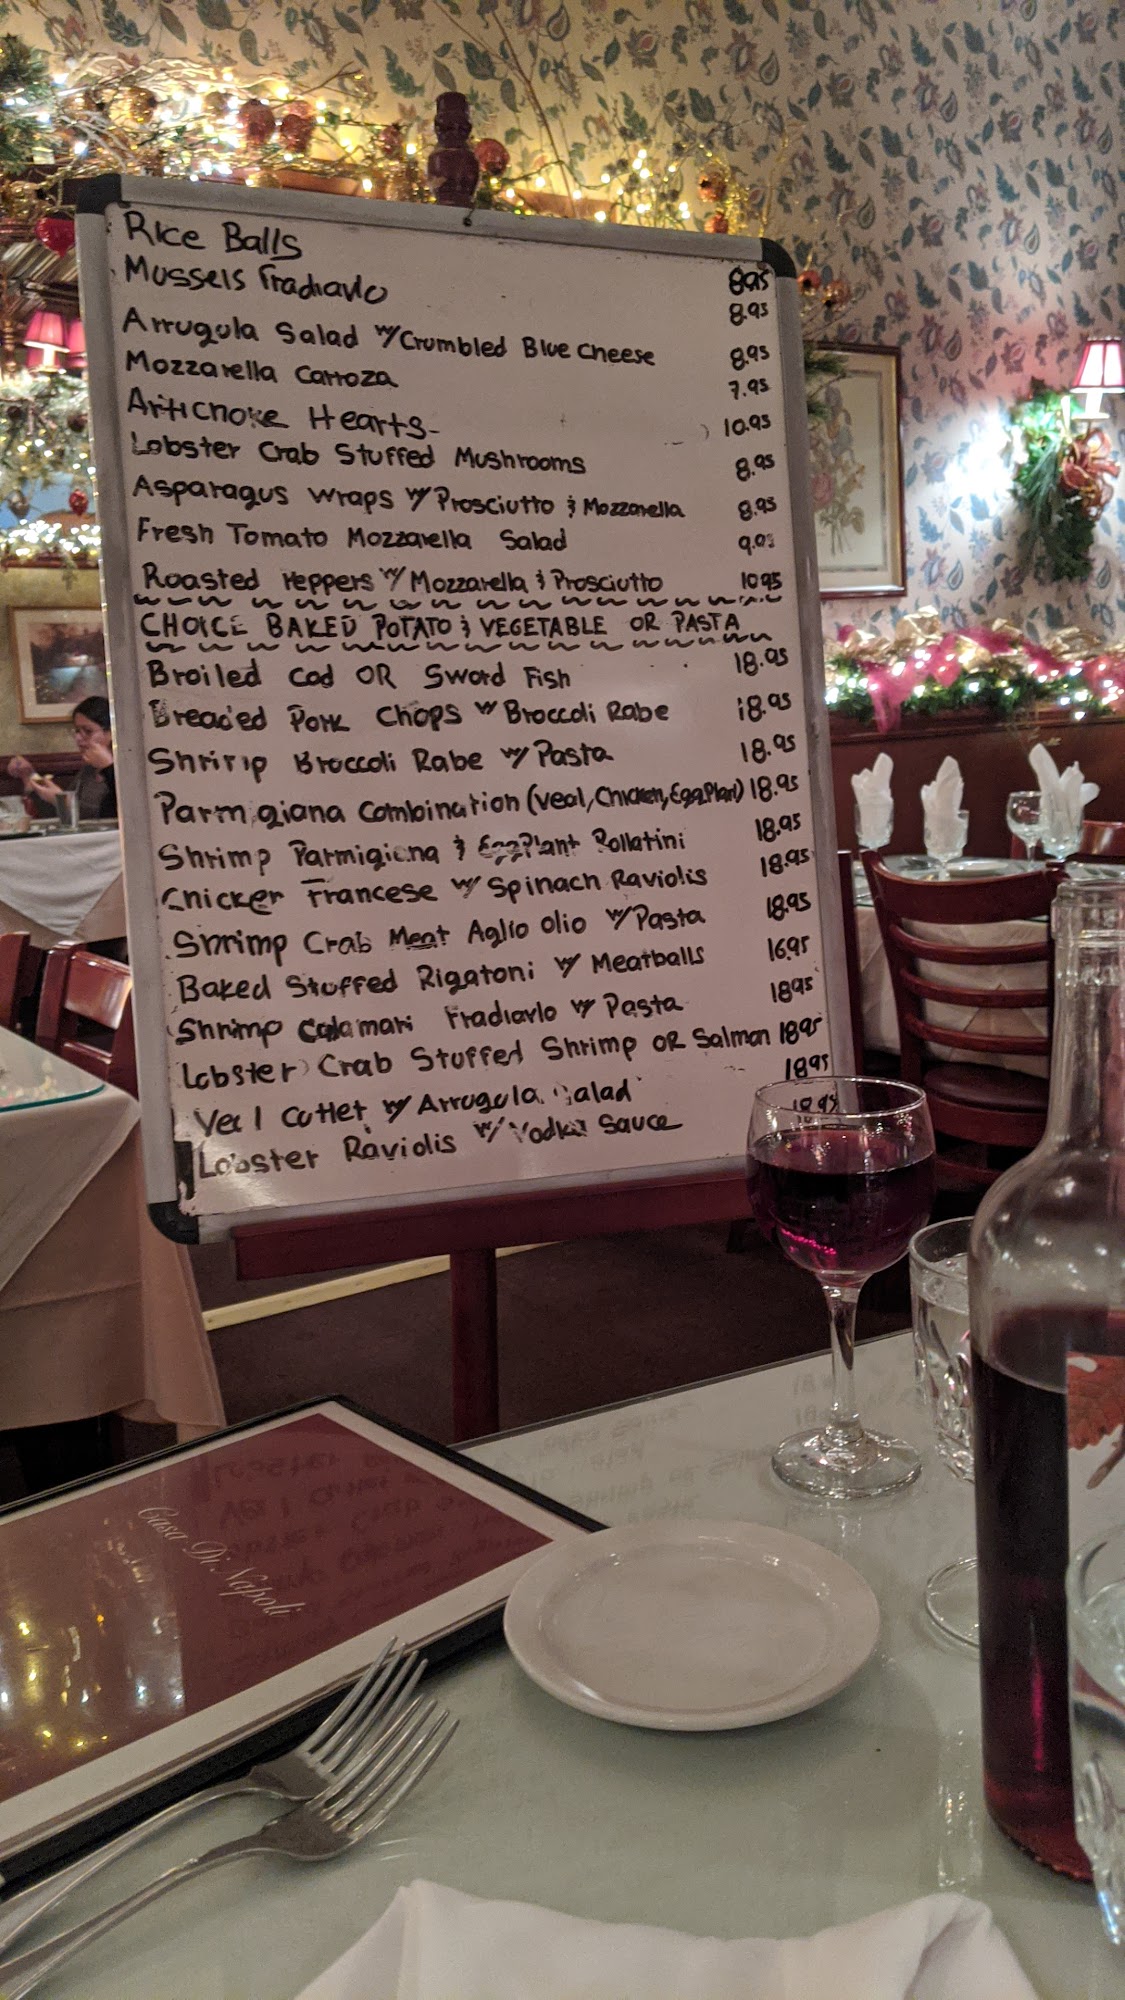 Rice Balls 8.95
Mussels Fradiavlo 8.95
Arrugula Salad w/ Crumbled Blue Cheese 8.95
Mozzarella Carroza 7.95
Artichoke Hearts- 10.95
Lobster Crab Stuffed Mushrooms 8.95
Asparagus Wraps w/ Prosciutto & Mozzarella 8.95
Fresh Tomato Mozzarella Salad 9.95
Roasted Peppers w/ Mozzarella & Prosciutto 10.95
CHOICE BAKED POTATO & VEGETABLE OR PASTA
Broiled Cod OR Sword Fish 18.95
Breaded Pork Chops w/ Broccoli Rabe 18.95
Shrimp Broccoli Rabe w/ Pasta 18.95
Parmigiana Combination (Veal, Chicken, EggPlant) 18.95
Shrimp Parmigiana & EggPlant Rollatini 18.95
Chicken Francese w/ Spinach Raviolis 18.95
Shrimp Crab Meat Aglio Olio w/ Pasta 18.95
Baked Stuffed Rigatoni w/ Meatballs 16.95
Shrimp Calamari Fradiavlo w/ Pasta 18.95
Lobster Crab Stuffed Shrimp OR Salmon 18.95
Veal Cutlet w/ Arrugula Salad 18.95
Lobster Raviolis w/ Vodka Sauce 18.95
Casa Di Napoli